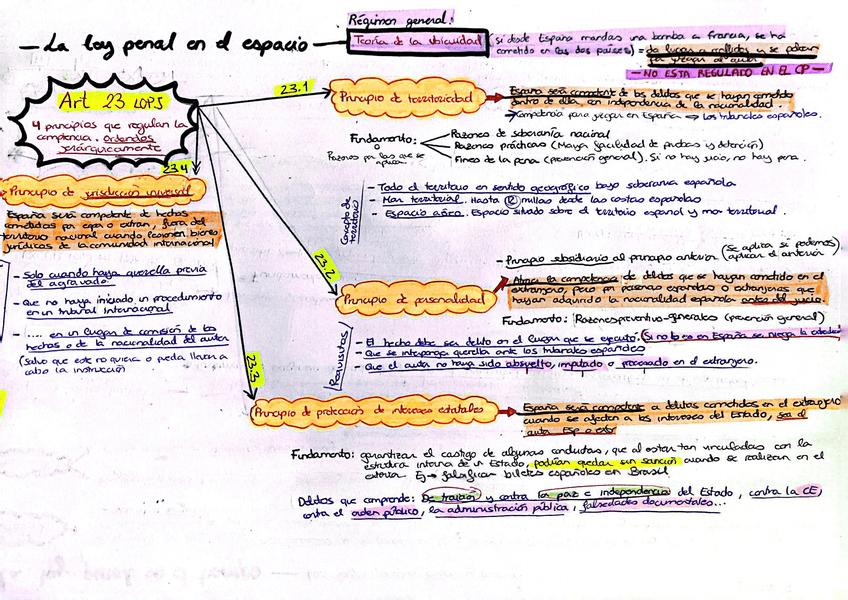 Régimen general:
— La ley penal en el espacio — Teoría de la ubicuidad (si desde España mandas una bomba a Francia, se ha
cometido en los dos países) = da lugar a conflictos y se podrían
— NO ESTA REGULADO EN EL CP —
Art 23 LOPJ
4 principios que regulan la
competencia. Ordenados
jerárquicamente
23.1
Principio de territorialidad
España será competente de los delitos que se hayan cometido
dentro de ella, en independencia de la nacionalidad.
→ Competencia para juzgar en España ⇒ los tribunales españoles.
Fundamento:
Razones por las que se
aplica
Razones de soberanía nacional
Razones prácticas (Mayor facilidad de pruebas y detención)
Fines de la pena (prevención general). Si no hay juicio, no hay pena.
Concepto de
territorio
- Todo el territorio en sentido geográfico bajo soberanía española
- Mar territorial. Hasta 12 millas desde las costas españolas
- Espacio aéreo. Espacio situado sobre el territorio español y mar territorial.
23.4
Principio de jurisdicción universal
España será competente de hechos
cometidos por esp o extran, fuera del
territorio nacional cuando lesionen bienes
jurídicos de la comunidad internacional
- Solo cuando haya querella previa
del agraviado.
- Que no haya iniciado un procedimiento
en un tribunal internacional
- ..... en un lugar de comisión de los
hechos o de la nacionalidad del autor
(Salvo que este no quiera o pueda llevar a
cabo la instrucción
23.2
Principio de personalidad
- Principio subsidiario al principio anterior (Se aplica si podemos
aplicar el anterior)
Abarca la competencia de delitos que se hayan cometido en el
extranjero, pero por personas españolas o extranjeras que
hayan adquirido la nacionalidad española antes del juicio.
Fundamento: Razones preventivo-generales (prevención general)
Requisitos
- El hecho debe ser delito en el lugar que se ejecutó. (Si no lo es en España se niega la
- Que se interponga querella ante los tribunales españoles
- Que el autor no haya sido absuelto, imputado o procesado en el extranjero.
23.3
Principio de protección de intereses estatales
España será competente a delitos cometidos en el extranjero
cuando se afecten a los intereses del Estado, sea el
autor Esp o extr
Fundamento: garantizar el castigo de algunas conductas, que al estar tan vinculadas con la
estructura interna de un Estado, podrían quedar sin sanción cuando se realizan en el
exterior. Ej → falsificar billetes españoles en Brasil
Delitos que comprende: De traición y contra la paz e independencia del Estado, contra la CE,
contra el orden público, la administración pública, falsedades documentales...